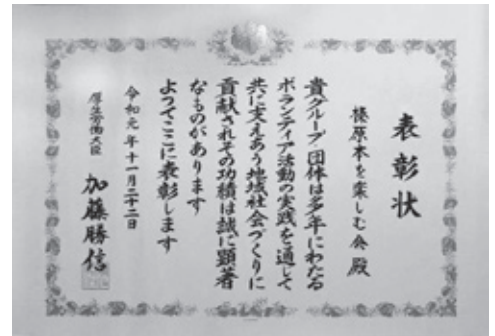 表彰状
榛原本を楽しむ会 殿
貴グループ・団体は多年にわたる
ボランティア活動の実践を通して
共に支えあう地域社会づくりに
貢献されその功績は誠に顕著
なものがあります
よってここに表彰します
令和元年十一月二十二日
厚生労働大臣 加藤勝信